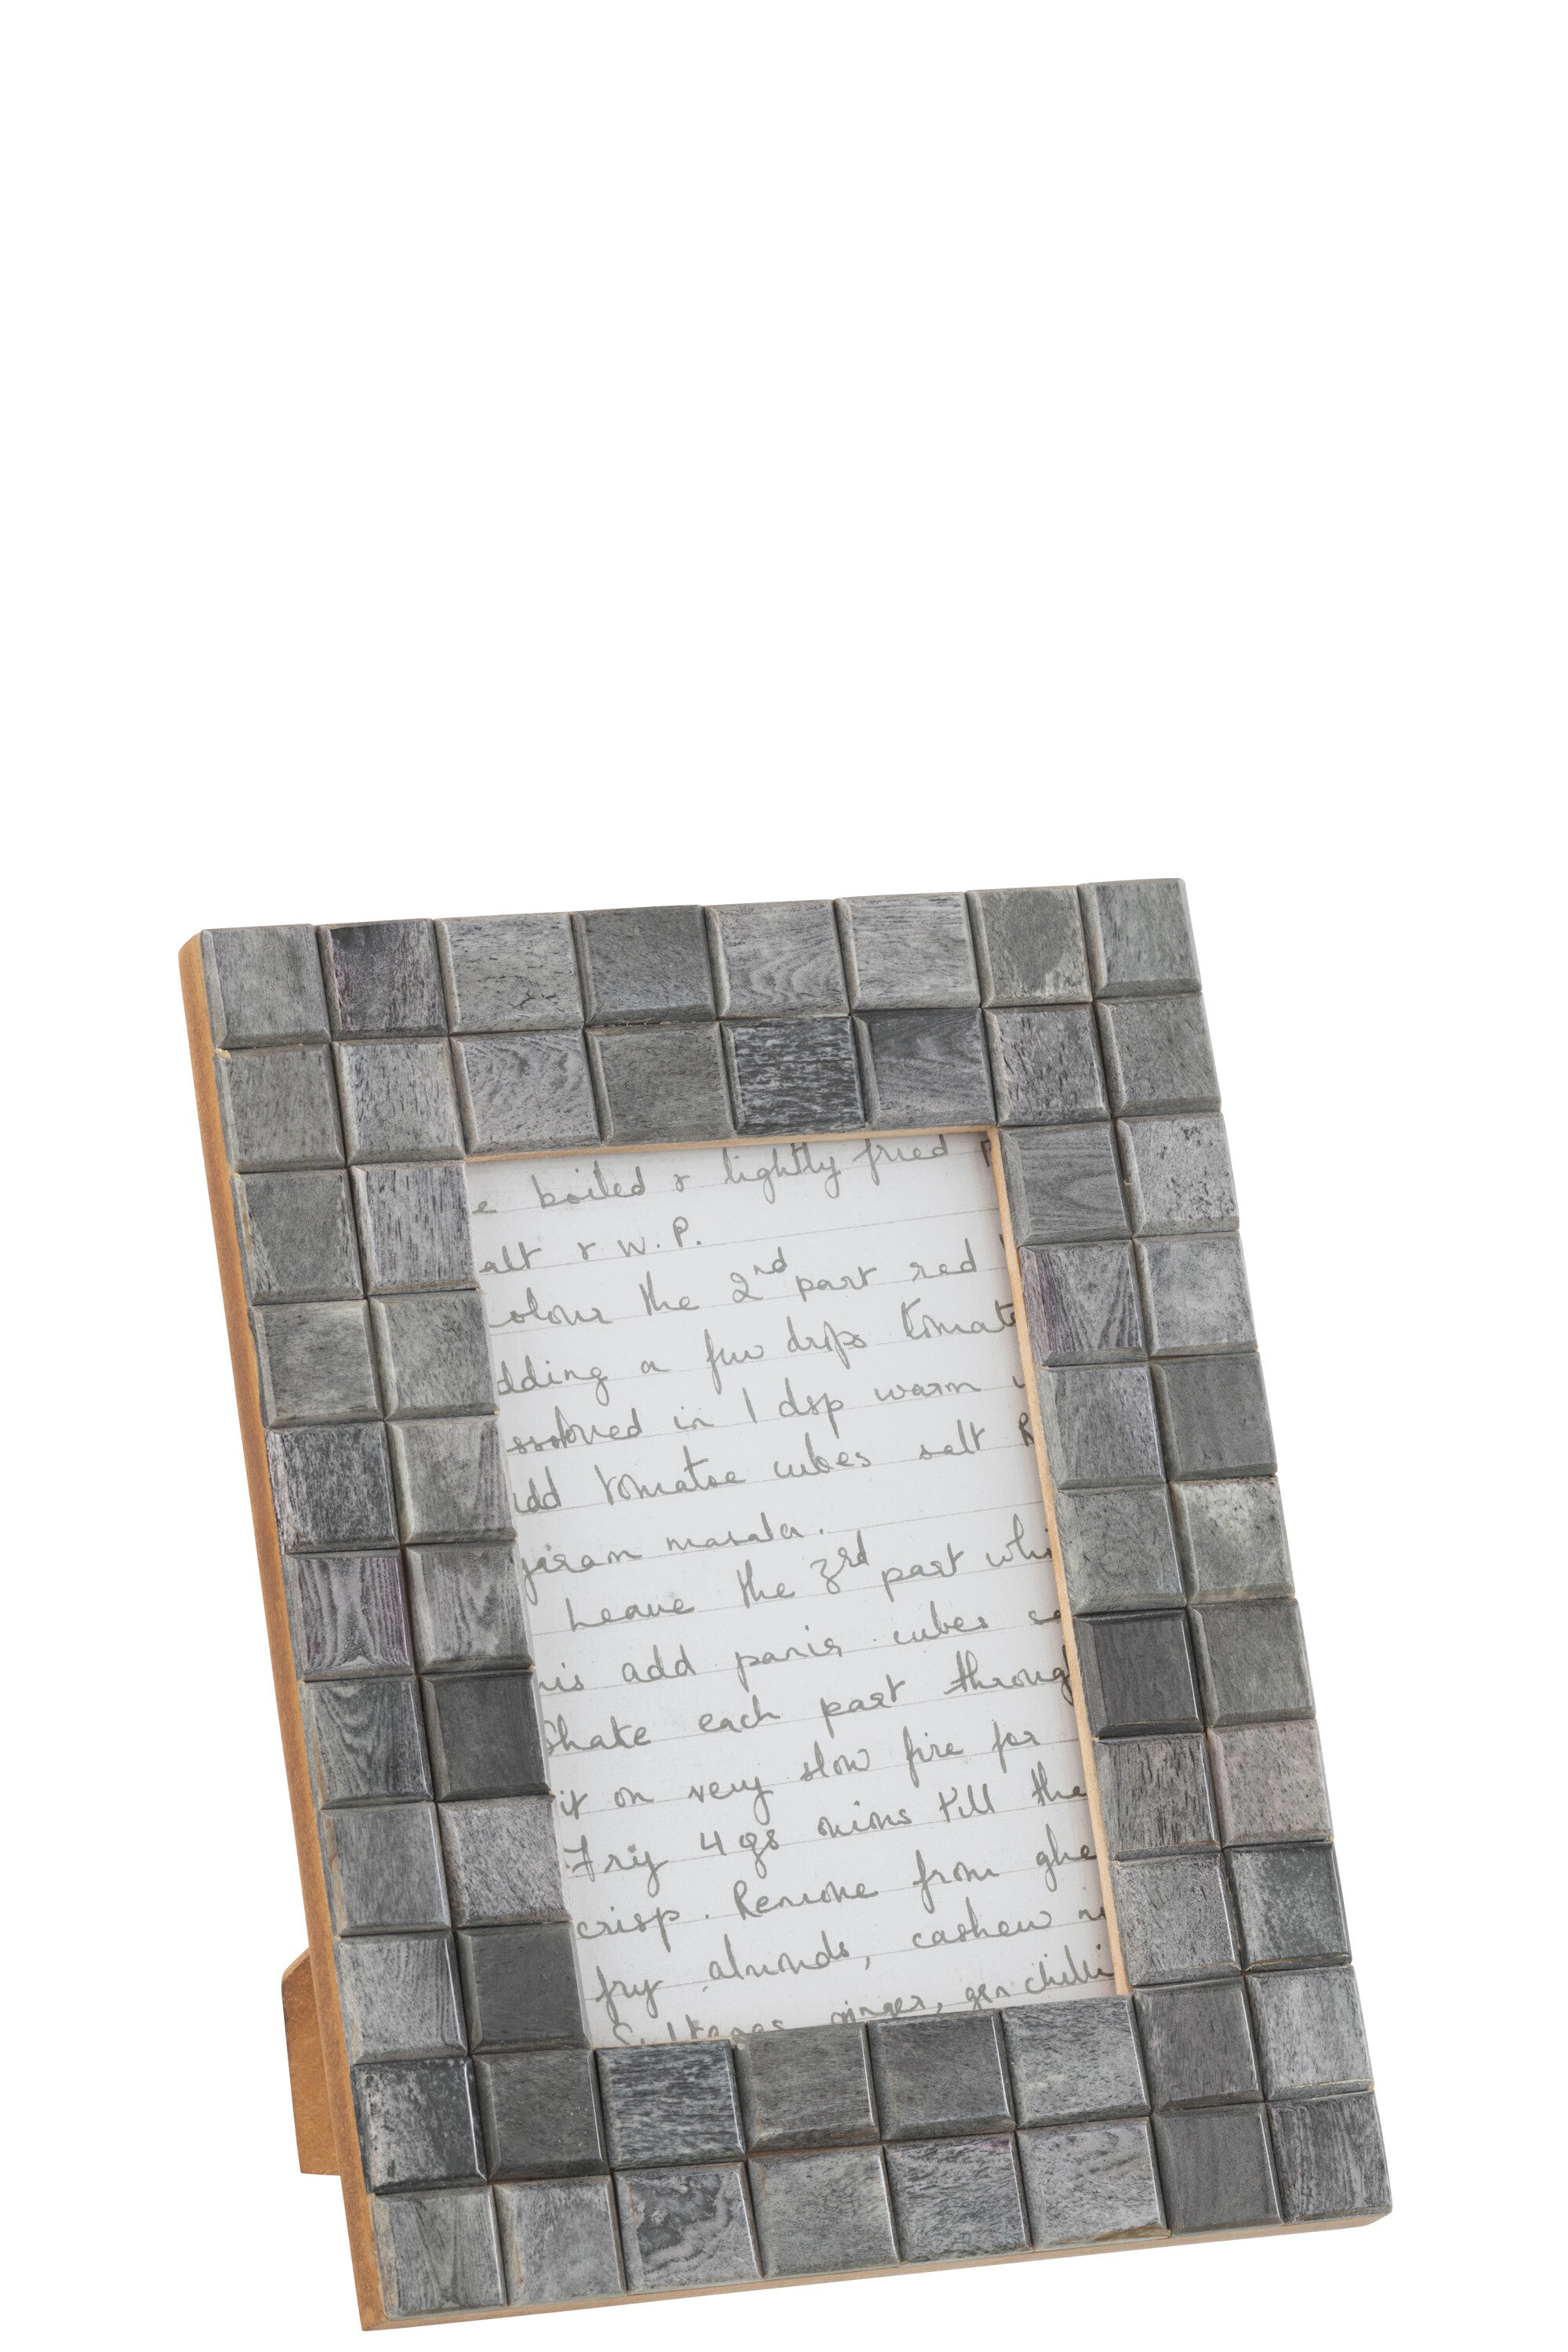 e boiled & lightly fried p
alt & W.P.
olour the 2nd part red
dding a few drops tomato
ssolved in 1 dsp warm
add tomatoe cubes salt R
garam masala.
Leave the 3rd part whi
his add panir cubes sa
Shake each part throug
it on very slow fire for
Fry 4 qs onions till the
crisp. Remove from ghe
fry almonds, cashew n
Sultanas ginger, grn chilli